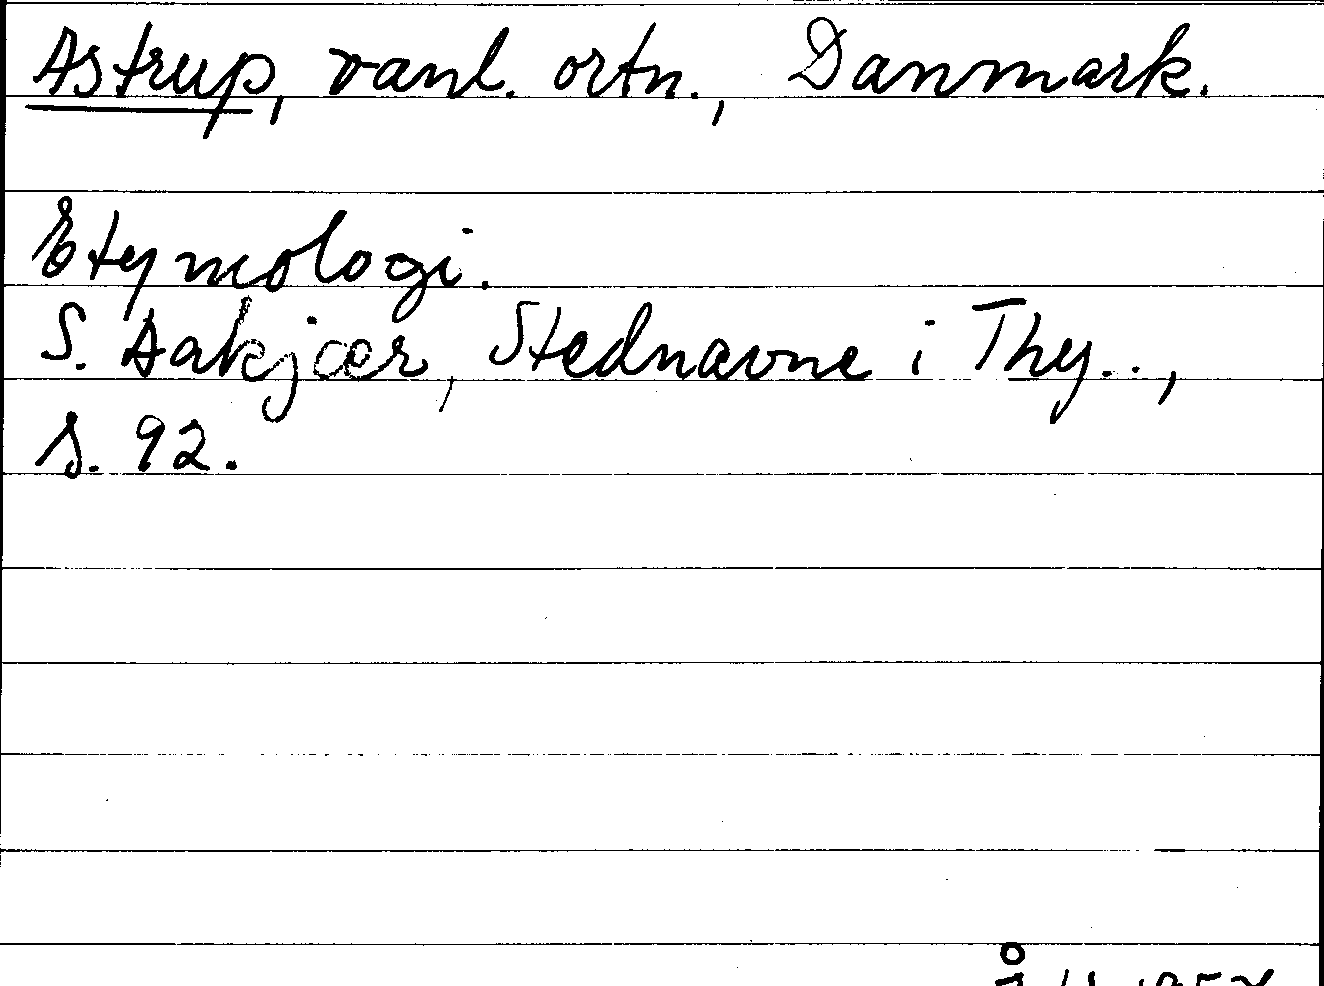 Astrup, vanl. ortn., Danmark.
Etymologi.
S. Aakjær, Stednavne i Thy..,
s. 92.